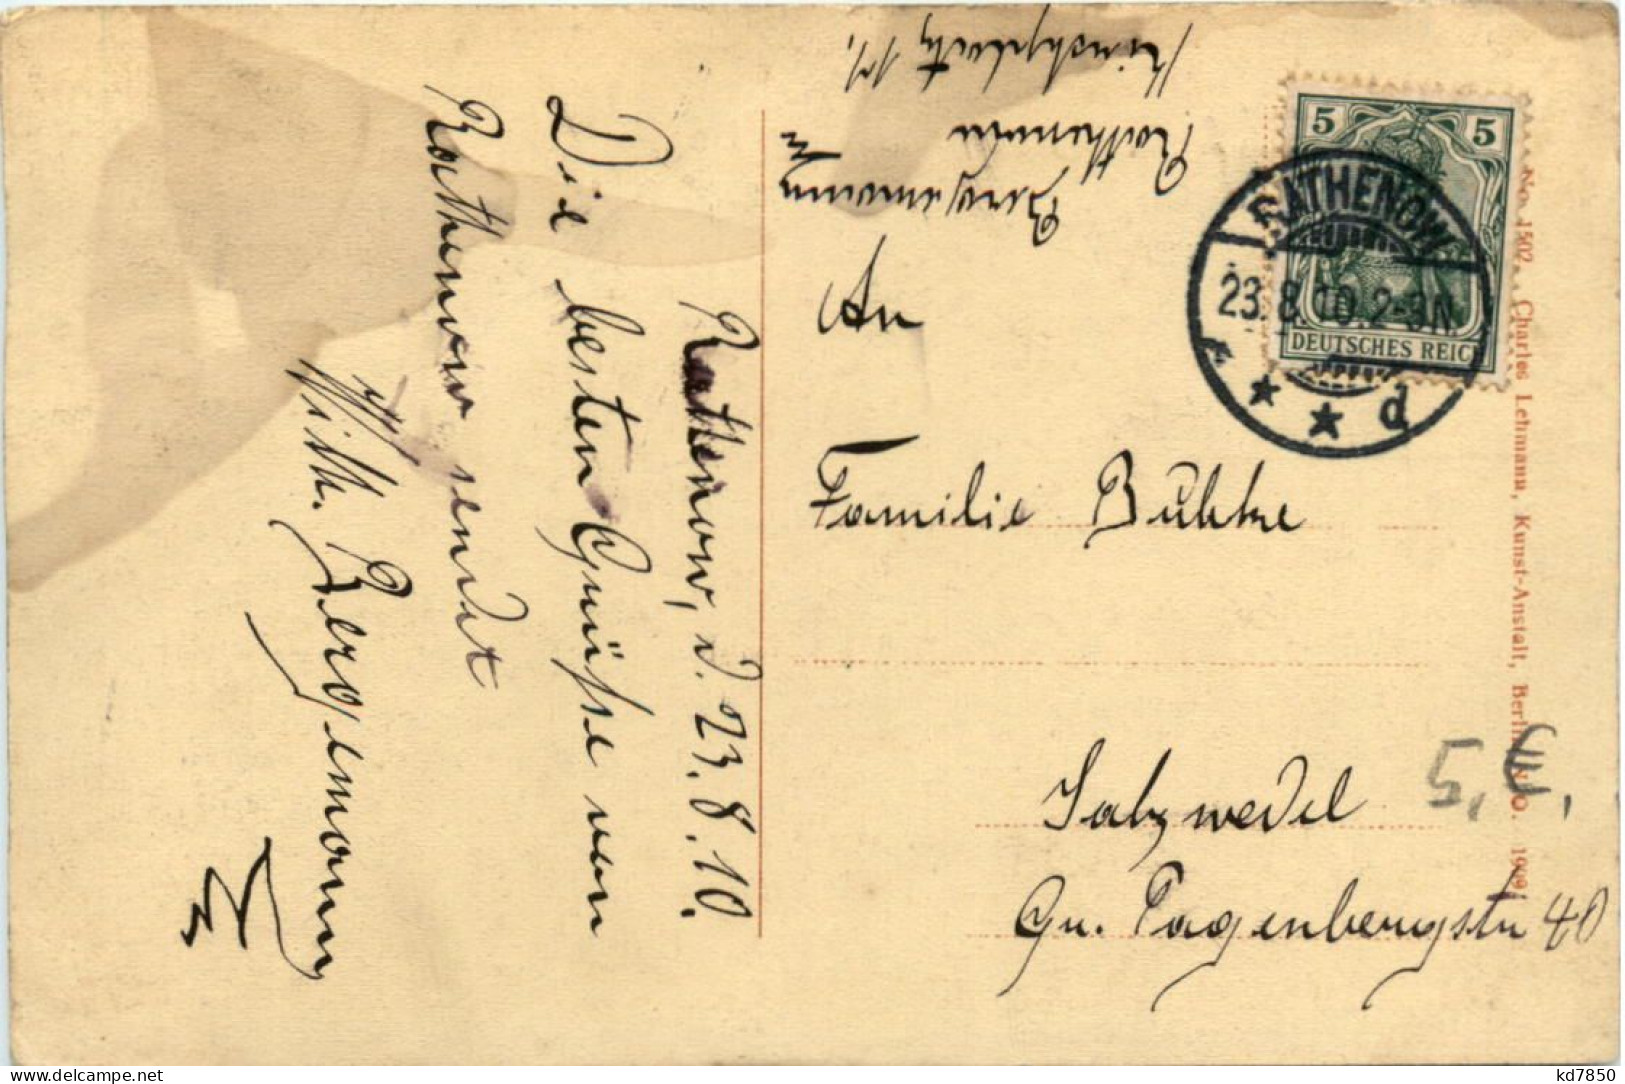 Rathenow, d. 23.8.10.
Die besten Grüße von
Rathenow sendet
Wilh. Bergemann
Bergemann
Rathenow
An
Familie Buhtze
Salzwedel
Gr. Pagenbergstr 40
5 5
DEUTSCHES REICH
RATHENOW
23.8.10.2-3N.
* * d
No. 1502 Charles Lehmann, Kunst-Anstalt, Berlin N.O. 1909
5,€,
kd7850